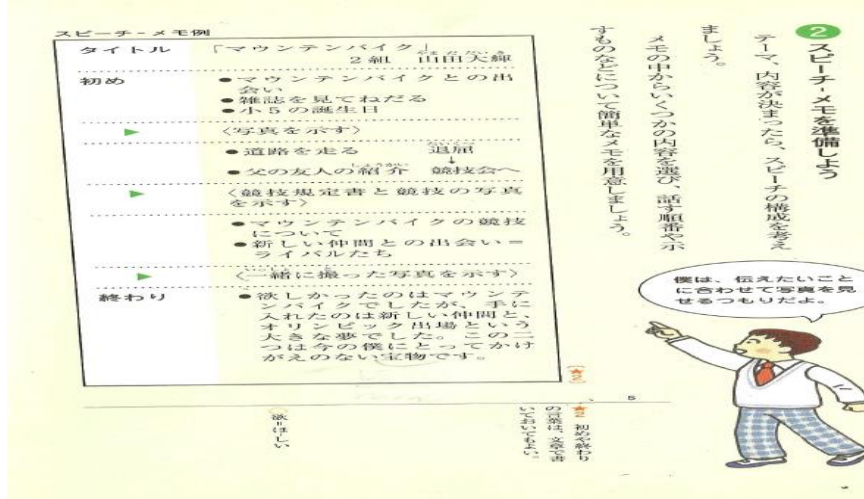 2 スピーチ・メモを準備しよう
テーマ、内容が決まったら、スピーチの構成を考え
ましょう。
メモの中からいくつかの内容を選び、話す順番や示
すものなどについて簡単なメモを用意しましょう。
僕は、伝えたいこと
に合わせて写真を見
せるつもりだよ。
スピーチ・メモ例
タイトル
「マウンテンバイク」
2組 山田大輝
やまだだいき
初め
●マウンテンバイクとの出
会い
●雑誌を見てねだる
●小5の誕生日
〈写真を示す〉
●道路を走る 退屈
たいくつ
↓
●父の友人の紹介 競技会へ
しょうかい
〈競技規定書と競技の写真
を示す〉
●マウンテンバイクの競技
について
●新しい仲間との出会い=
ライバルたち
〈一緒に撮った写真を示す〉
終わり
●欲しかったのはマウンテ
ンバイクでしたが、手に
入れたのは新しい仲間と、
オリンピック出場という
大きな夢でした。この二
つは今の僕にとってかけ
がえのない宝物です。
(★2)
5
★2 初めや終わり
の言葉は、文章で書
いておいてもよい。
欲=ほしい